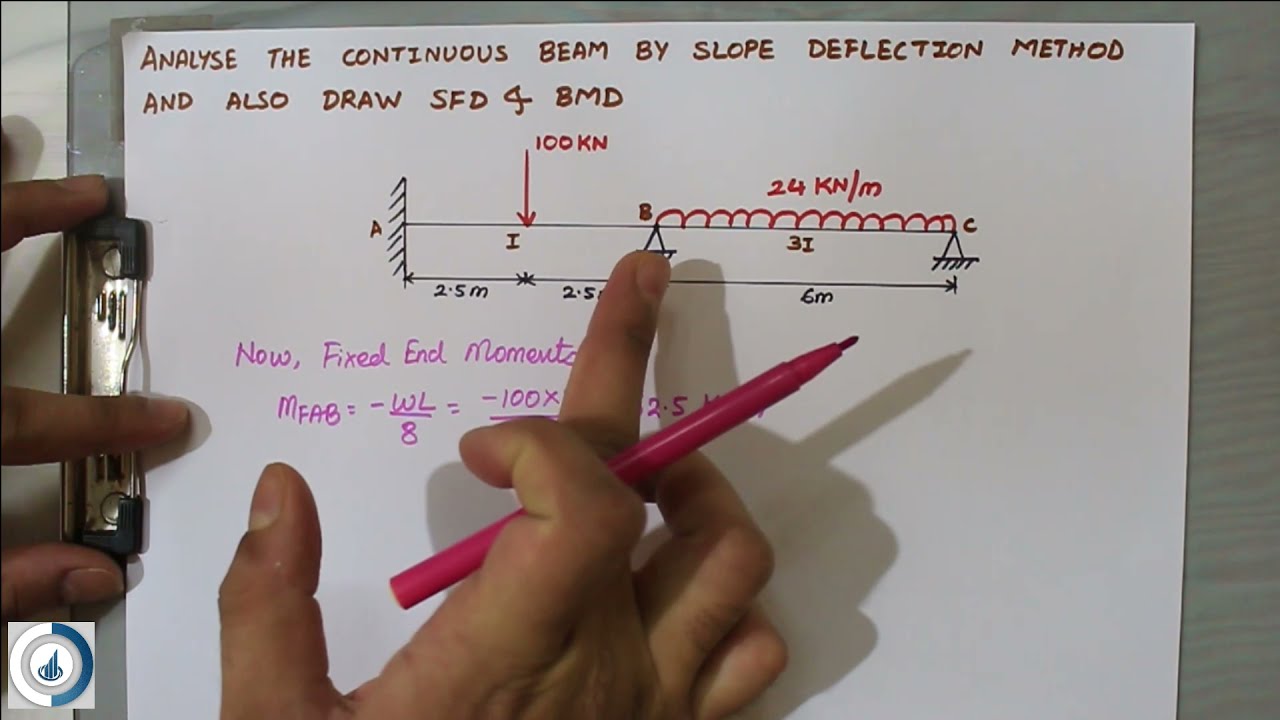 ANALYSE THE CONTINUOUS BEAM BY SLOPE DEFLECTION METHOD
AND ALSO DRAW SFD & BMD
100 KN
24 KN/m
A
B
C
I
3I
2.5m
2.5
6m
Now, Fixed End Moments
MFAB = -WL/8 = -100×
2.5